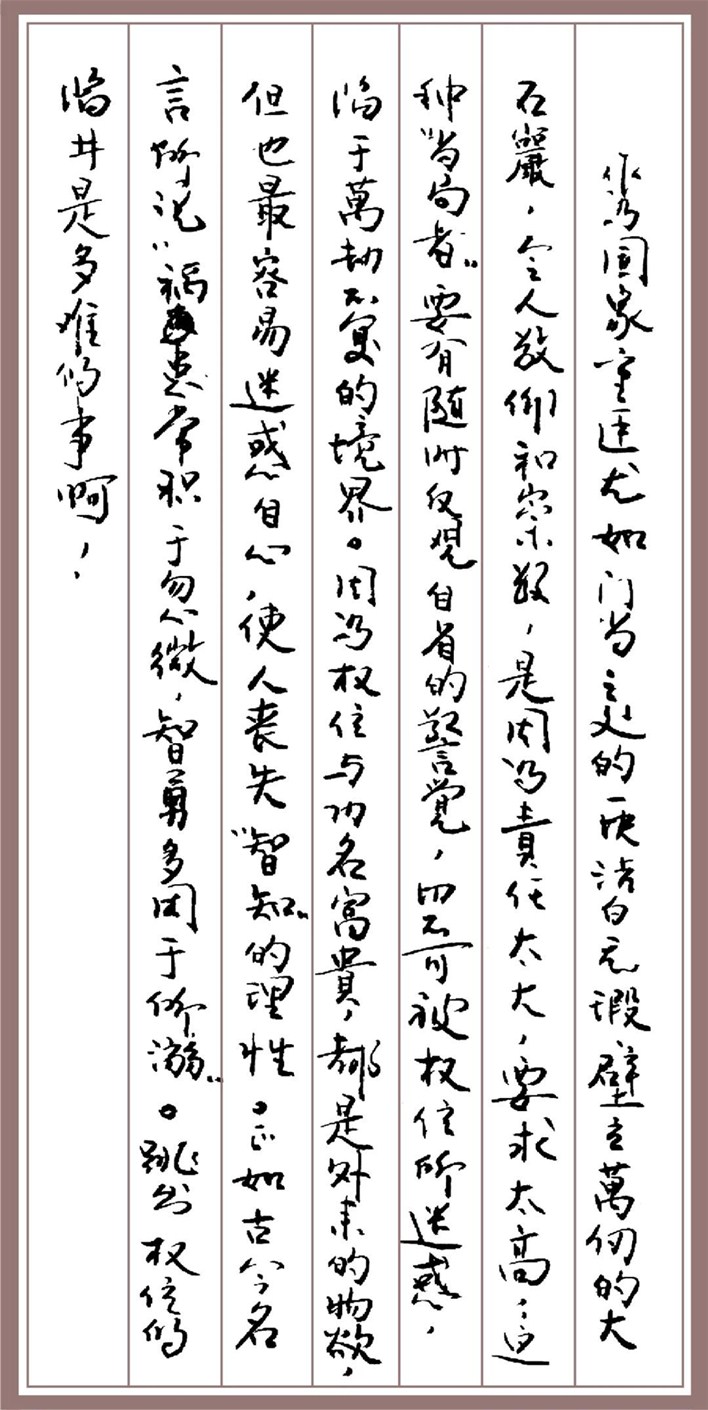 作为国家重臣尤如门当之处的一块洁白无瑕壁立萬仞的大
石巖，令人敬仰和崇敬，是因为責任太大，要求太高，这
种“当局者”要有随时反观自省的警觉，切不可被权位所迷惑，
陷于萬劫不复的境界。因为权位与功名富貴，都是外来的物欲，
但也最容易迷惑自心，使人丧失“智知”的理性。正如古今名
言所说“祸患常积于忽微，智勇多困于所溺”。跳出权位的
陷井是多难的事啊！